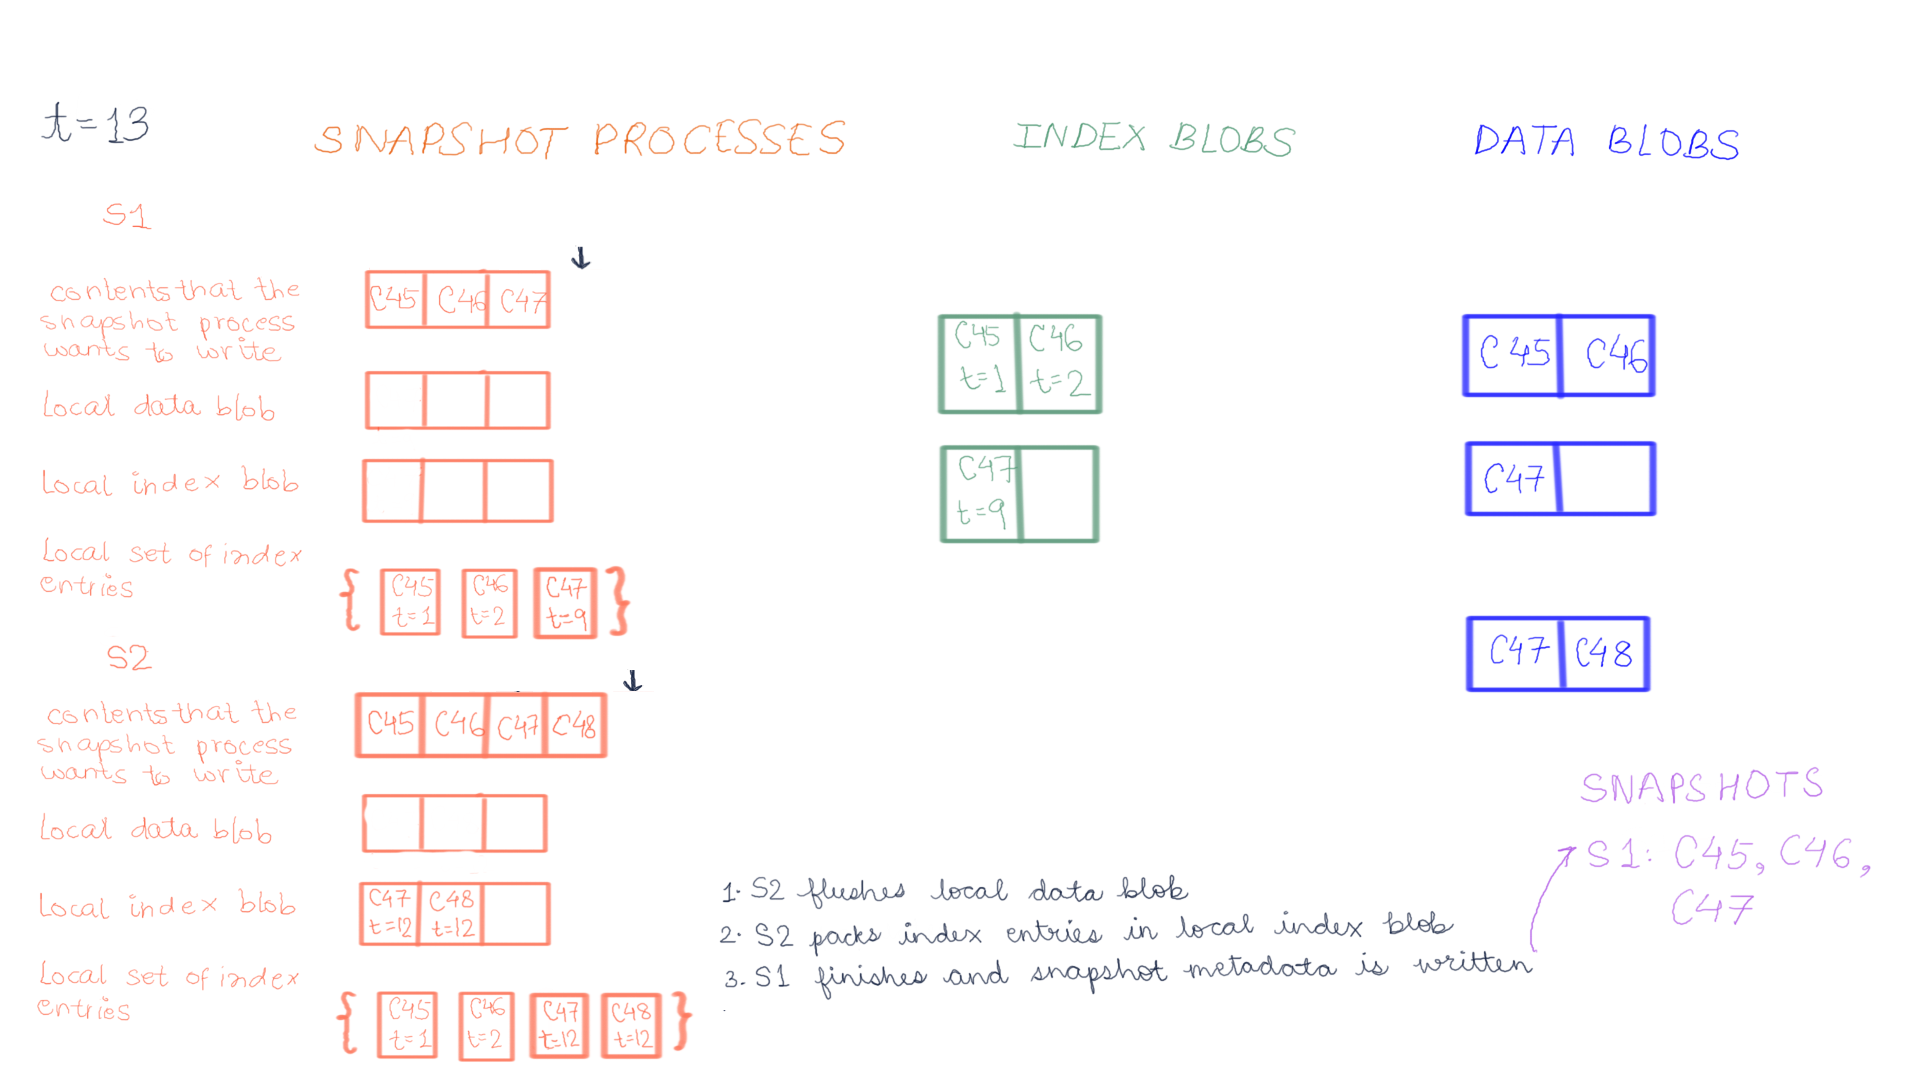 t=13
SNAPSHOT PROCESSES
INDEX BLOBS
DATA BLOBS
S1
contents that the
snapshot process
wants to write
C45 C46 C47
Local data blob
Local index blob
Local set of index
entries
{ C45 C46 C47 }
t=1 t=2 t=9
S2
contents that the
snapshot process
wants to write
C45 C46 C47 C48
Local data blob
Local index blob
C47 C48
t=12 t=12
Local set of index
entries
{ C45 C46 C47 C48 }
t=1 t=2 t=12 t=12
C45 C46
t=1 t=2
C47
t=9
C45 C46
C47
C47 C48
1. S2 flushes local data blob
2. S2 packs index entries in local index blob
3. S1 finishes and snapshot metadata is written
SNAPSHOTS
S1: C45, C46,
C47